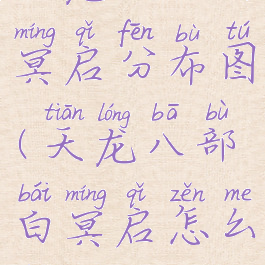 míng qǐ fēn bù tú
冥启分布图
tiān lóng bā bù
(天龙八部
bái míng qǐ zěn me
白冥启怎么